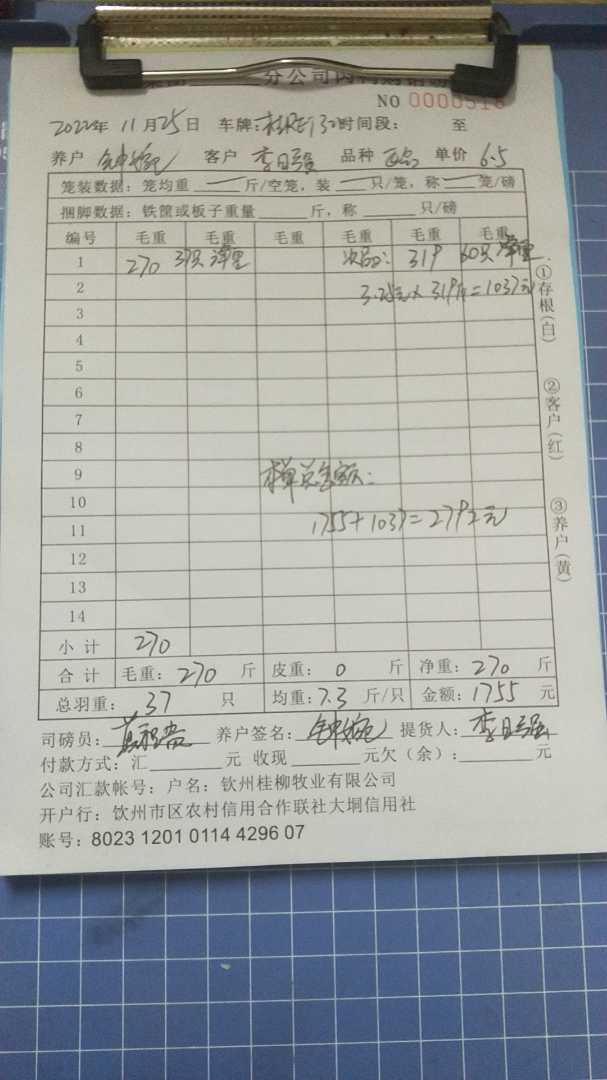 分公司内
NO 0000516
2022年 11月25日 车牌: 时间段: 至
养户 钟 客户 李日强 品种 单价 6.5
笼装数据: 笼均重 — 斤/空笼, 装 — 只/笼, 称 — 笼/磅
捆脚数据: 铁筐或板子重量 斤, 称 只/磅
编号 毛重 毛重 毛重 毛重 毛重 毛重
1 270 37只 净重 次品: 319 60只 净重
2 3.25元×319斤=1037元
3
4
5
6
7
8
9 本单总金额:
10
11 1755+1037=2792元
12
13
14
小计 270
合计 毛重: 270 斤 皮重: 0 斤 净重: 270 斤
总羽重: 37 只 均重: 7.3 斤/只 金额: 1755 元
司磅员: 养户签名: 钟 提货人: 李日强
付款方式: 汇 元 收现 元欠(余): 元
公司汇款帐号: 户名: 钦州桂柳牧业有限公司
开户行: 钦州市区农村信用合作联社大垌信用社
账号: 8023 1201 0114 4296 07
①存根(白)
②客户(红)
③养户(黄)